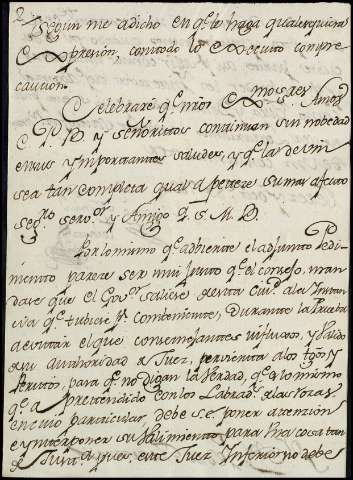 2
Segun me a dicho en q.e le haga qualesquiera
expresion, con todo lo executo con pre
caucion.
Celebrare q.e mios Ex.mos
P. P. y Señoritos continuen sin nobedad
en sus ymportantes saludes, y q.e la de Vm
sea tan completa qual apeteze su mas afecto
seg.ro serv.or y Amigo Q. S. M. B.
Por lo mismo q.e advierte el adjunto Pedi-
mento pareze ser mui justo q.e el consejo man
dase que el Gov.or saliese de esta Ciu.d a la distan
cia q.e tubiese p.r combeniente, durante la Prueba
a evitar el que con semejantes influxos, y Valido
de su authoridad de Juez, pervierta a los tgos y
Peritos, para q.e no digan la Verdad, q.e es lo mismo
q.e a pretendido con los Labrad.s
en cuio particular debe se poner attencion
e ynterponer su Valimiento para Una cosa tan
Justa, pues, este Juez Inferior no debe